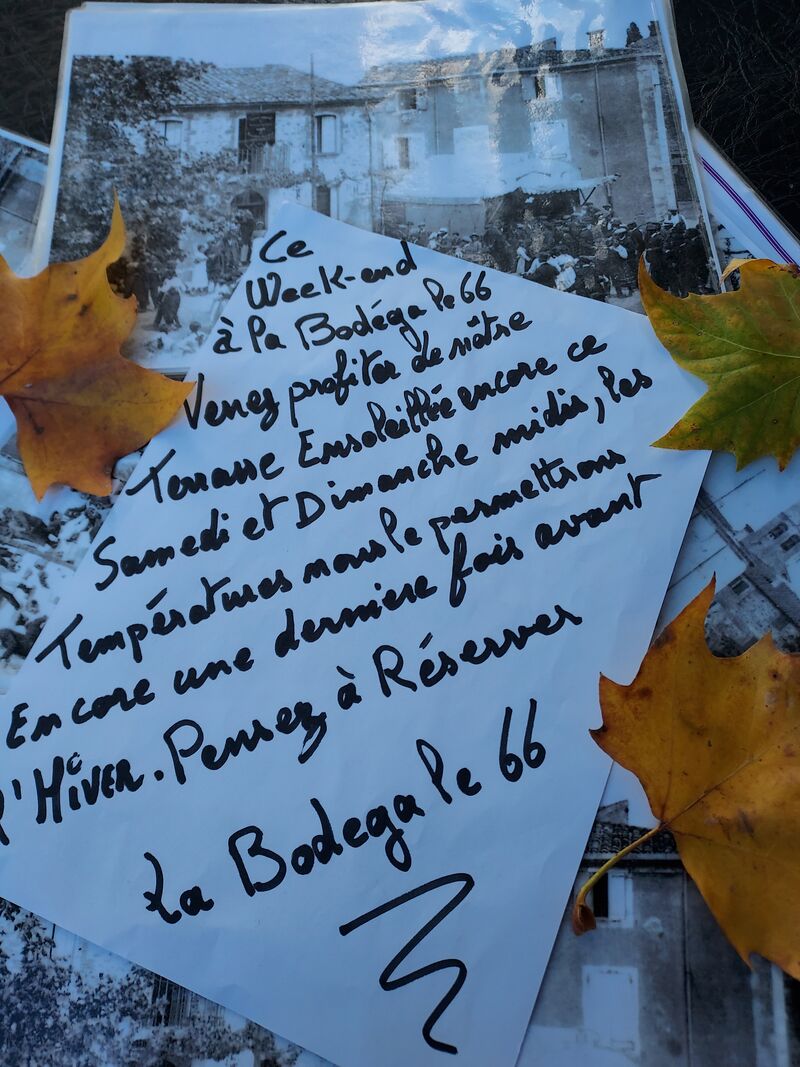 Ce
Week-end
à la Bodéga le 66
Venez profiter de nôtre
Terrasse Ensoleillée encore ce
Samedi et Dimanche midis, les
Températures nous le permettrons
Encore une derniere fois avant
l'HiVER. Pensez à Réserver
La Bodega le 66